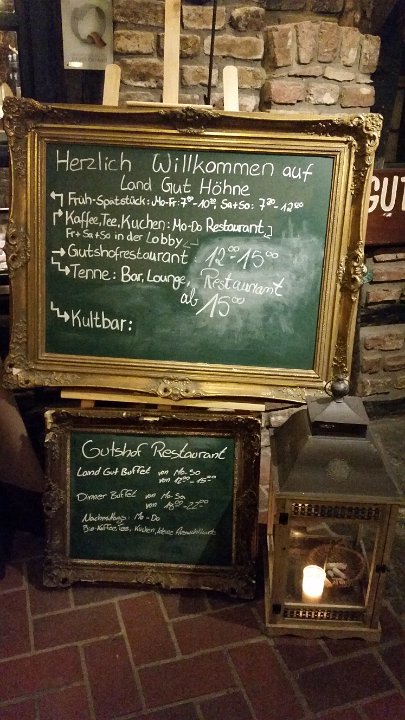 Herzlich Willkommen auf
Land Gut Höhne
Früh-Spätstück: Mo-Fr: 7⁰⁰-10³⁰, Sa+So: 7³⁰-12⁰⁰
Kaffee, Tee, Kuchen: Mo-Do Restaurant
Fr+Sa+So in der Lobby
Gutshofrestaurant: 12⁰⁰-15⁰⁰
Tenne: Bar, Lounge, Restaurant
ab 15⁰⁰
Kultbar:
GUT
Gutshof Restaurant
Land Gut Buffet von Mo-So
von 12⁰⁰-15⁰⁰
Dinner Buffet von Mo-Sa
von 18⁰⁰-22⁰⁰
Nachmittag: Mo-Do
Bio-Kaffee, Tee, Kuchen, kleine Auswahlkarte